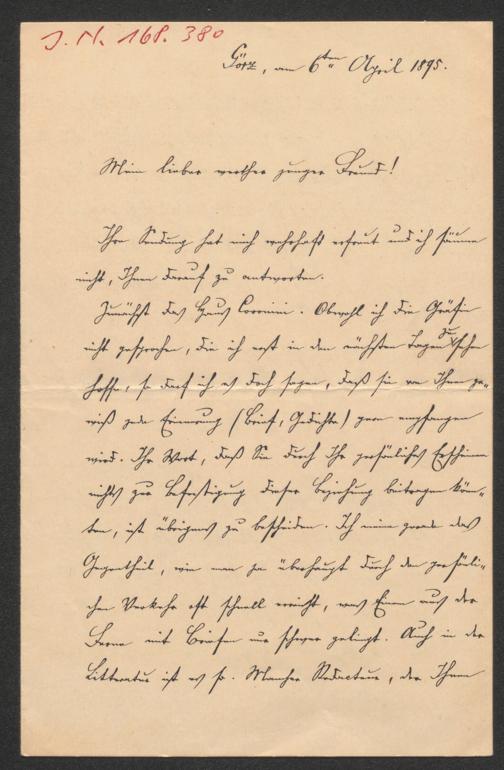 J. N. 168. 380
Görz, am 6ten April 1895.
Mein lieber werther junger Freund!
Ihre Sendung hat mich wahrhaft erfreut und ich säume
nicht, Ihnen darauf zu antworten.
Zunächst das Haus Coronini. Obwohl ich die Gräfin
nicht gesprochen, die ich erst in den nächsten Tagen zu sehen
hoffe, so darf ich es doch sagen, daß sie von Ihnen ge-
wiß jede Erinnerung (Brief, Gedichte) gern empfangen
wird. Ihr Wort, daß Sie durch Ihr persönliches Erscheinen
nichts zur Befestigung dieser Beziehung beitragen könn-
ten, ist übrigens zu bescheiden. Ich meine gerade das
Gegentheil, wie man ja überhaupt durch den persönli-
chen Verkehr oft schnell erreicht, was Einem aus der
Ferne mit Briefen nur schwer gelingt. Auch in der
Litteratur ist es so. Mancher Redacteur, der Ihnen